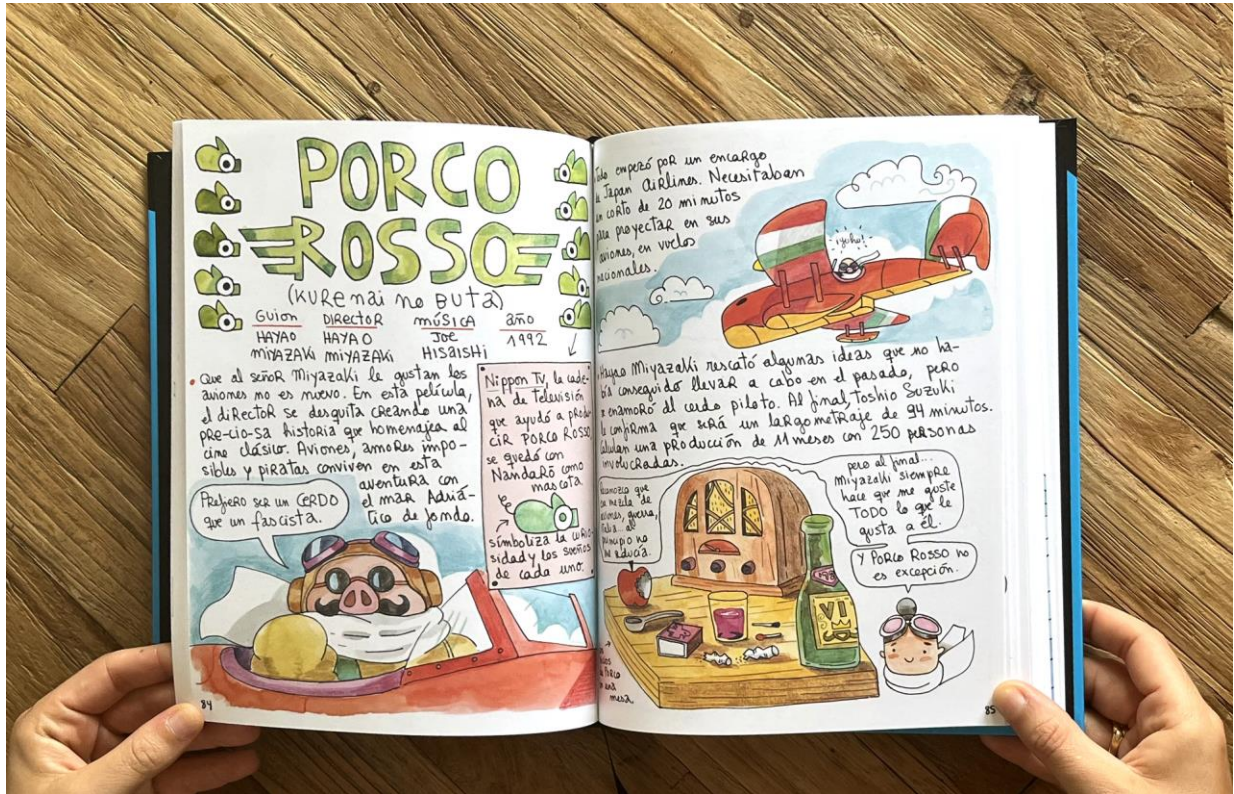 PORCO
ROSSO
(KURENAI NO BUTA)
Guion
DIRECTOR
MÚSICA
AÑO
HAYAO
MIYAZAKI
HAYAO
MIYAZAKI
JOE
HISAISHI
1992
Que al señor Miyazaki le gustan los
aviones no es nuevo. En esta película,
el director se desquita creando una
pre-cio-sa historia que homenajea al
cine clásico. Aviones, amores impo-
sibles y piratas conviven en esta
aventura con
el mar Adriá-
tico de fondo.
Nippon TV, la cade-
na de televisión
que ayudó a produ-
cir PORCO ROSSO,
se quedó con
Nandarō como
mascota
simboliza la curio-
sidad y los sueños
de cada uno.
Prefiero ser un CERDO
que un fascista.
84
empezó por un encargo
Japan Airlines. Necesitaban
un corto de 20 minutos
para proyectar en sus
aviones, en vuelos
nacionales.
¡yuhu!
Hayao Miyazaki rescató algunas ideas que no ha-
bía conseguido llevar a cabo en el pasado, pero
se enamoró del cerdo piloto. Al final, Toshio Suzuki
le confirma que será un largometraje de 94 minutos.
Calculan una producción de 11 meses con 250 personas
involucradas.
que
mezcla de
guerra,
al
principio no
seducía.
pero al final...
Miyazaki siempre
hace que me guste
TODO lo que le
gusta a él.
Y PORCO ROSSO no
es excepción.
VI
Porco
en una
mesa
85